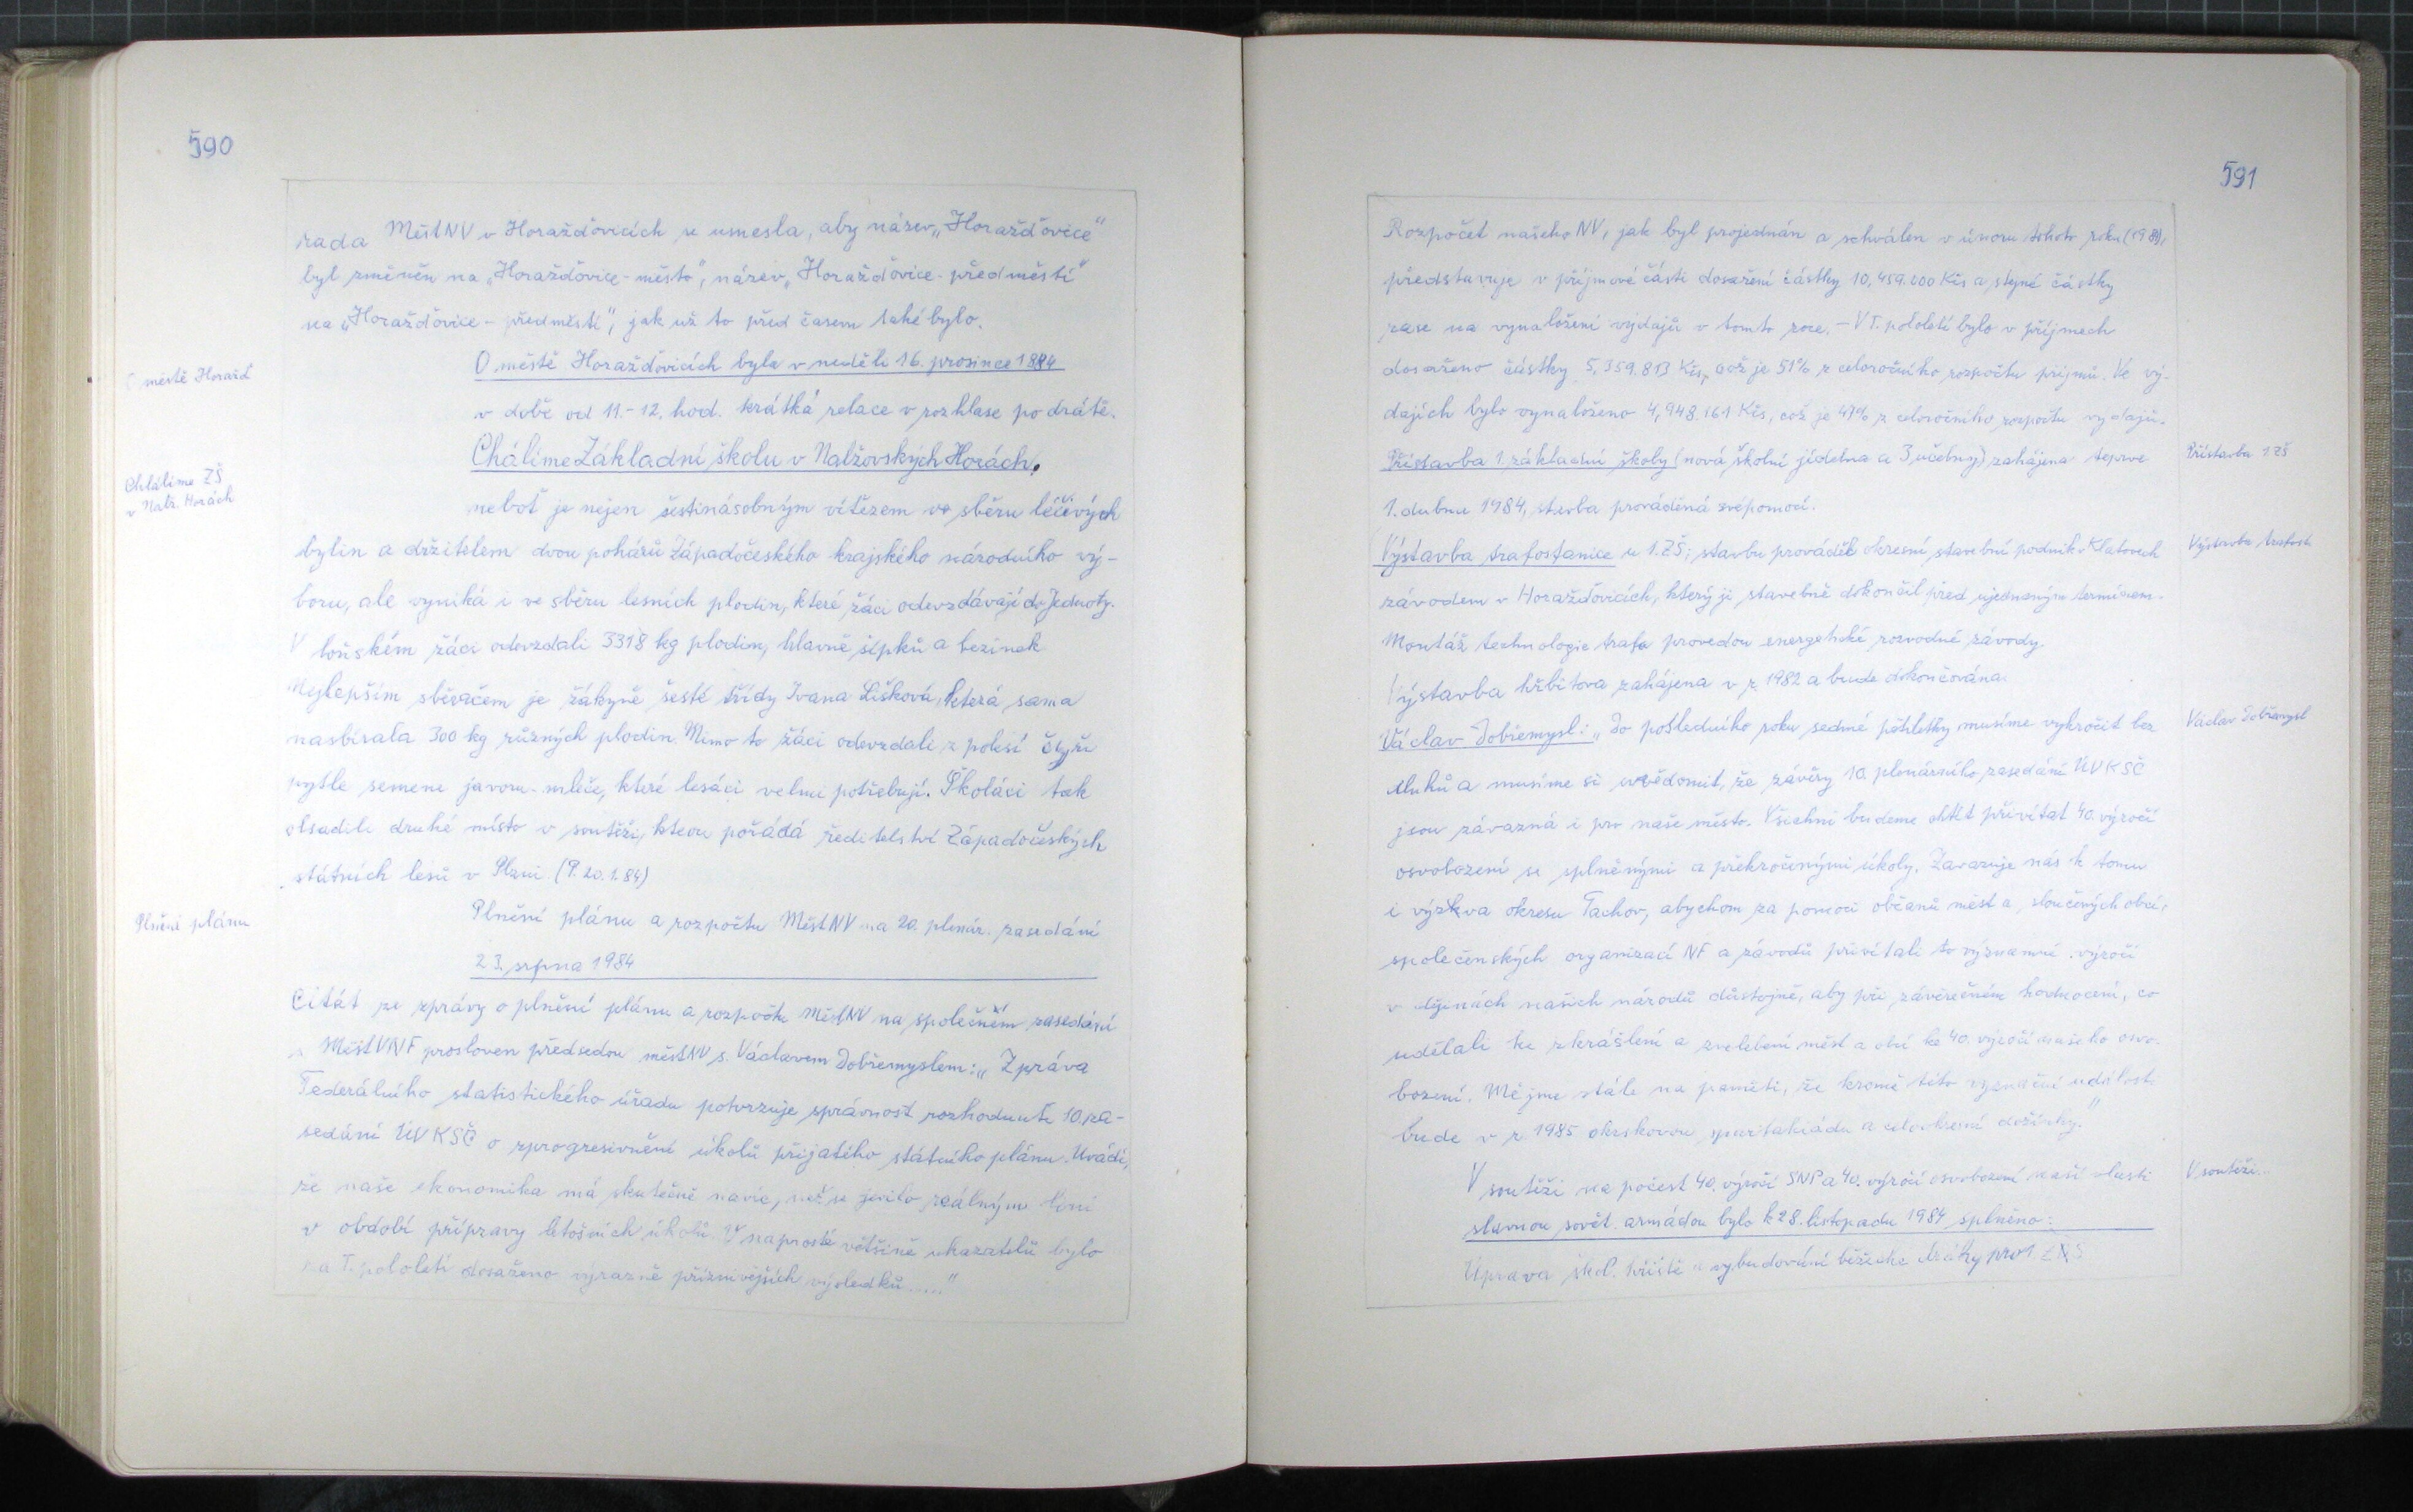 590
rada MěstNV v Horažďovicích se usnesla, aby název „Horažďovice"
byl změněn na „Horažďovice-město", název „Horažďovice-předměstí"
na „Horažďovice - předměstí", jak už to před časem také bylo.
O městě Horažď
O městě Horažďovicích byla v neděli 16. prosince 1984
v době od 11.-12. hod. krátká relace v rozhlase po drátě.
Chválíme ZŠ
v Nalž. Horách
Chálíme Základní školu v Nalžovských Horách,
neboť je nejen šestinásobným vítězem ve sběru léčivých
bylin a držitelem dvou pohárů Západočeského krajského národního vý-
boru, ale vyniká i ve sběru lesních plodin, které žáci odevzdávají do Jednoty.
V loňském žáci odevzdali 3318 kg plodin, hlavně šípků a bezinek
Nejlepším sběračem je žákyně šesté třídy Ivana Lišková, která sama
nasbírala 300 kg různých plodin. Mimo to žáci odevzdali z polesí čtyři
pytle semene javoru-mléče, které lesáci velmi potřebují. Školáci tak
obsadili druhé místo v soutěži, kterou pořádá ředitelství Západočeských
státních lesů v Plzni. (P. 20.1.84)
Plnění plánu
Plnění plánu a rozpočtu MěstNV na 20. plenár. zasedání
23. srpna 1984
Citát ze zprávy o plnění plánu a rozpočtu MěstNV na společném zasedání
s MěstVNF prosloven předsedou městNV s. Václavem Dobřemyslem: „Zpráva
Federálního statistického úřadu potvrzuje správnost rozhodnutí 10. za-
sedání ÚV KSČ o zprogresivnění úkolů přijatého státního plánu. Uvádí,
že naše ekonomika má skutečně navíc, než se jevilo reálným loni
v období přípravy letošních úkolů. V naprosté většině ukazatelů bylo
za I. pololetí dosaženo výrazně příznivějších výsledků....."
591
Rozpočet našeho NV, jak byl projednán a schválen v únoru tohoto roku (1984),
představuje v příjmové části dosažení částky 10,459.200 Kčs a stejné částky
zase na vynaložení výdajů v tomto roce. - V I. pololetí bylo v příjmech
dosaženo částky 5,359.813 Kčs, což je 51% z celoročního rozpočtu příjmů. Ve vý-
dajích bylo vynaloženo 4,948.161 Kčs, což je 47% z celoročního rozpočtu výdajů.
Přístavba 1. základní školy (nová školní jídelna a 3 učebny) zahájena teprve
Přístavba 1 ZŠ
1. dubna 1984, stavba prováděná svépomocí.
Výstavba trafostanice u 1. ZŠ; stavbu prováděl okresní stavební podnik v Klatovech
Výstavba trafost.
závodem v Horažďovicích, který ji stavebně dokončil před ujednaným termínem.
Montáž technologie trafa provedou energetické rozvodné závody.
Výstavba hřbitova zahájena v r. 1982 a bude dokončována.
Václav Dobřemysl: „Do posledního roku sedmé pětiletky musíme vykročit bez
Václav Dobřemysl
dluhů a musíme si uvědomit, že závěry 10. plenárního zasedání ÚV KSČ
jsou závazná i pro naše město. Všichni budeme chtít přivítat 40. výročí
osvobození se splněnými a překročenými úkoly. Zavazuje nás k tomu
i výzva okresu Tachov, abychom za pomoci občanů měst a sloučených obcí,
společenských organizací NF a závodů přivítali to významné výročí
v dějinách našich národů důstojně, aby při závěrečném hodnocení, co
udělali ke zkrášlení a zvelebení měst a obcí ke 40. výročí našeho osvo-
bození. Mějme stále na paměti, že kromě této význačné události
bude v r. 1985 okrskovou spartakiádu a celookresní dožínky."
V soutěži na počest 40. výročí SNP a 40. výročí osvobození naší vlasti
V soutěži..
slavnou sovět. armádou bylo k 28. listopadu 1984 splněno:
Úprava škol. hřiště a vybudování běžecké dráhy pro 1 ZŠ